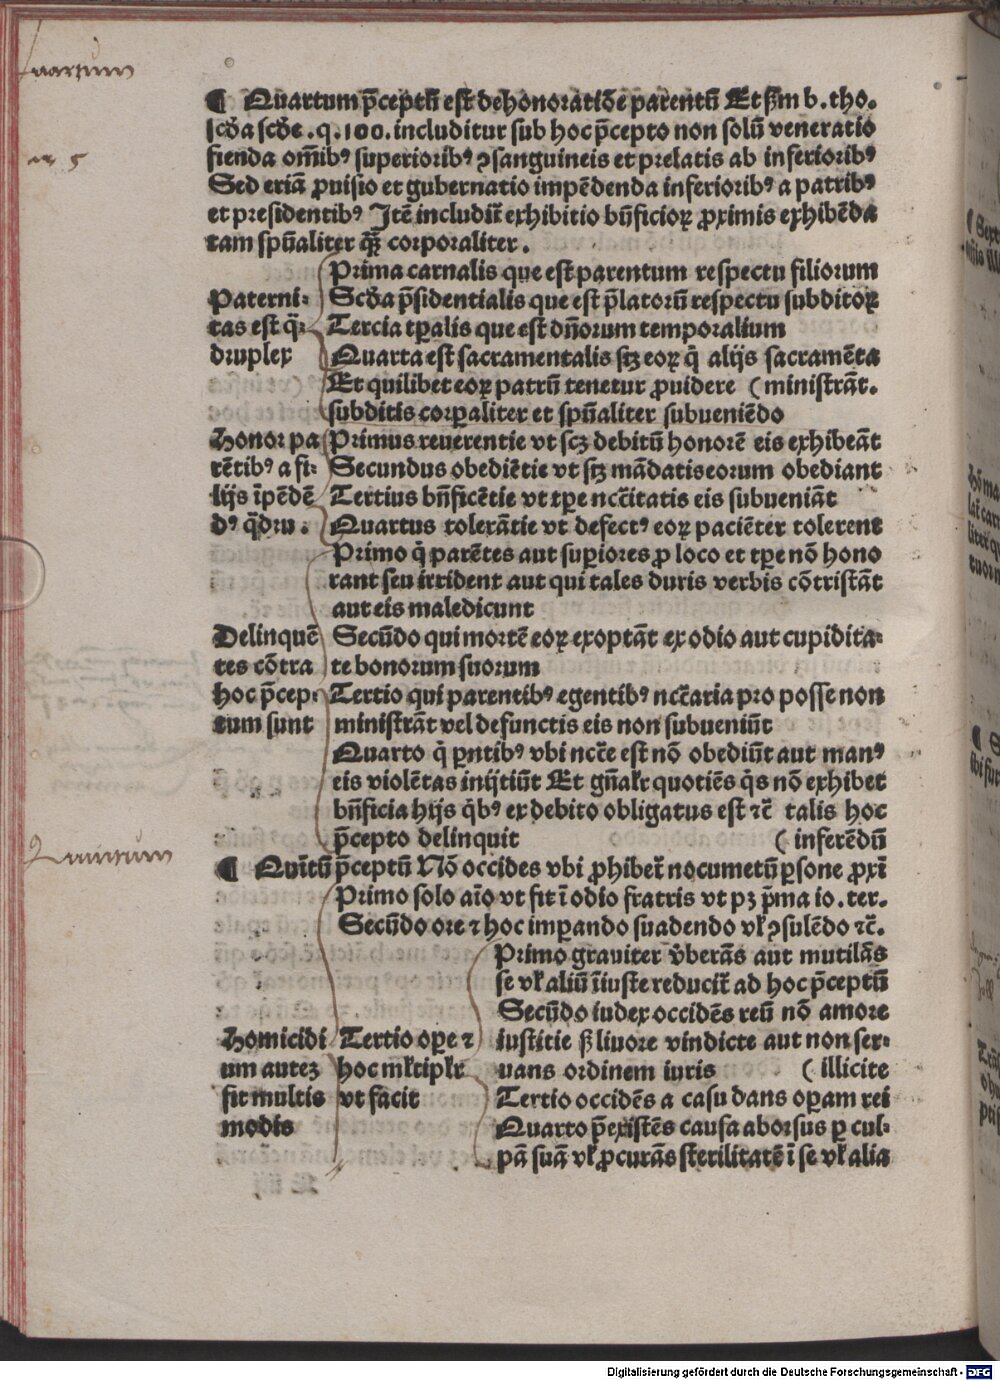 Quartum
ar 5
¶ Quartum p̄ceptū est de honoratiōe parentū Et ẜm b. tho.
scd̄a scd̄e .q.100. includitur sub hoc p̄cepto non solū veneratio
fienda om̄ibꝰ superioribꝰ ↄsanguineis et prelatis ab inferioribꝰ
Sed etiā ꝓuisio et gubernatio impēdenda inferioribꝰ a patribꝰ
et presidentibꝰ Itē includit̄ exhibitio bn̄ficioꝝ ꝓximis exhibēda
tam spūaliter qꝫ̄ corporaliter.
Paterni⸗
tas est q̄⸗
druplex
Prima carnalis que est parentum respectu filiorum
Scd̄a p̄sidentialis que est p̄latorū respectu subditoꝝ
Tercia tꝑalis que est dn̄orum temporalium
Quarta est sacramentalis scꝫ eoꝝ q̄ alijs sacramēta
Et quilibet eoꝝ patrū tenetur ꝓuidere ( ministrāt.
subditis corꝑaliter et spūaliter subueniēdo
Honor pa
rētibꝰ a fi⸗
lijs īpēdē
dꝰ q̄dru.
Primus reuerentie vt scꝫ debitū honorē eis exhibeāt
Secundus obediētie vt scꝫ mādatis eorum obediant
Tertius bn̄ficētie vt tꝑe nccītatis eis subueniāt
Quartus tolerātie vt defectꝰ eoꝝ paciēter tolerent
Delinquē
tes cōtra
hoc p̄cep⸗
tum sunt
Primo q̄ parētes aut suꝑiores ꝓ loco et tꝑe nō hono
rant seu irrident aut qui tales duris verbis cōtristāt
aut eis maledicunt
Secūdo qui mortē eoꝝ exoptāt ex odio aut cupidita⸗
te bonorum suorum
Tertio qui parentibꝰ egentibꝰ ncc̄aria pro posse non
ministrāt vel defunctis eis non subueniūt
Quarto q̄ ꝑntibꝰ vbi ncc̄e est nō obediūt aut manꝰ
eis violētas inijtiūt Et gn̄alr̄ quotiēs q̄s nō exhibet
bn̄ficia hijs q̄bꝰ ex debito obligatus est ⁊c̄ talis hoc
p̄cepto delinquit ( inferēdū
Quintum
¶ Quītū p̄ceptū Nō occides vbi ꝓhibet̄ nocumētū ꝑsone ꝓxī
Homicidi
um autez
fit multis
modis
Primo solo aīo vt fit ī odio fratris vt pꝫ p̄ma io. ter.
Secūdo ore ⁊ hoc imꝑando suadendo vl̄ ↄsulēdo ⁊c̄.
Tertio oꝑe ⁊
hoc ml̄tipl̄r
vt facit
Primo grauiter v̄berās aut mutilās
se vl̄ aliū īiuste reducit̄ ad hoc p̄ceptū
Secūdo iudex occidēs reū nō amore
iustitie ß liuore vindicte aut non ser⸗
uans ordinem iuris ( illicite
Tertio occidēs a casu dans oꝑam rei
Quarto p̄existēs causa aborsus ꝑ cul⸗
pā suā vl̄ ꝓcurās sterilitatē ī se vl̄ alia
Digitalisierung gefördert durch die Deutsche Forschungsgemeinschaft - DFG